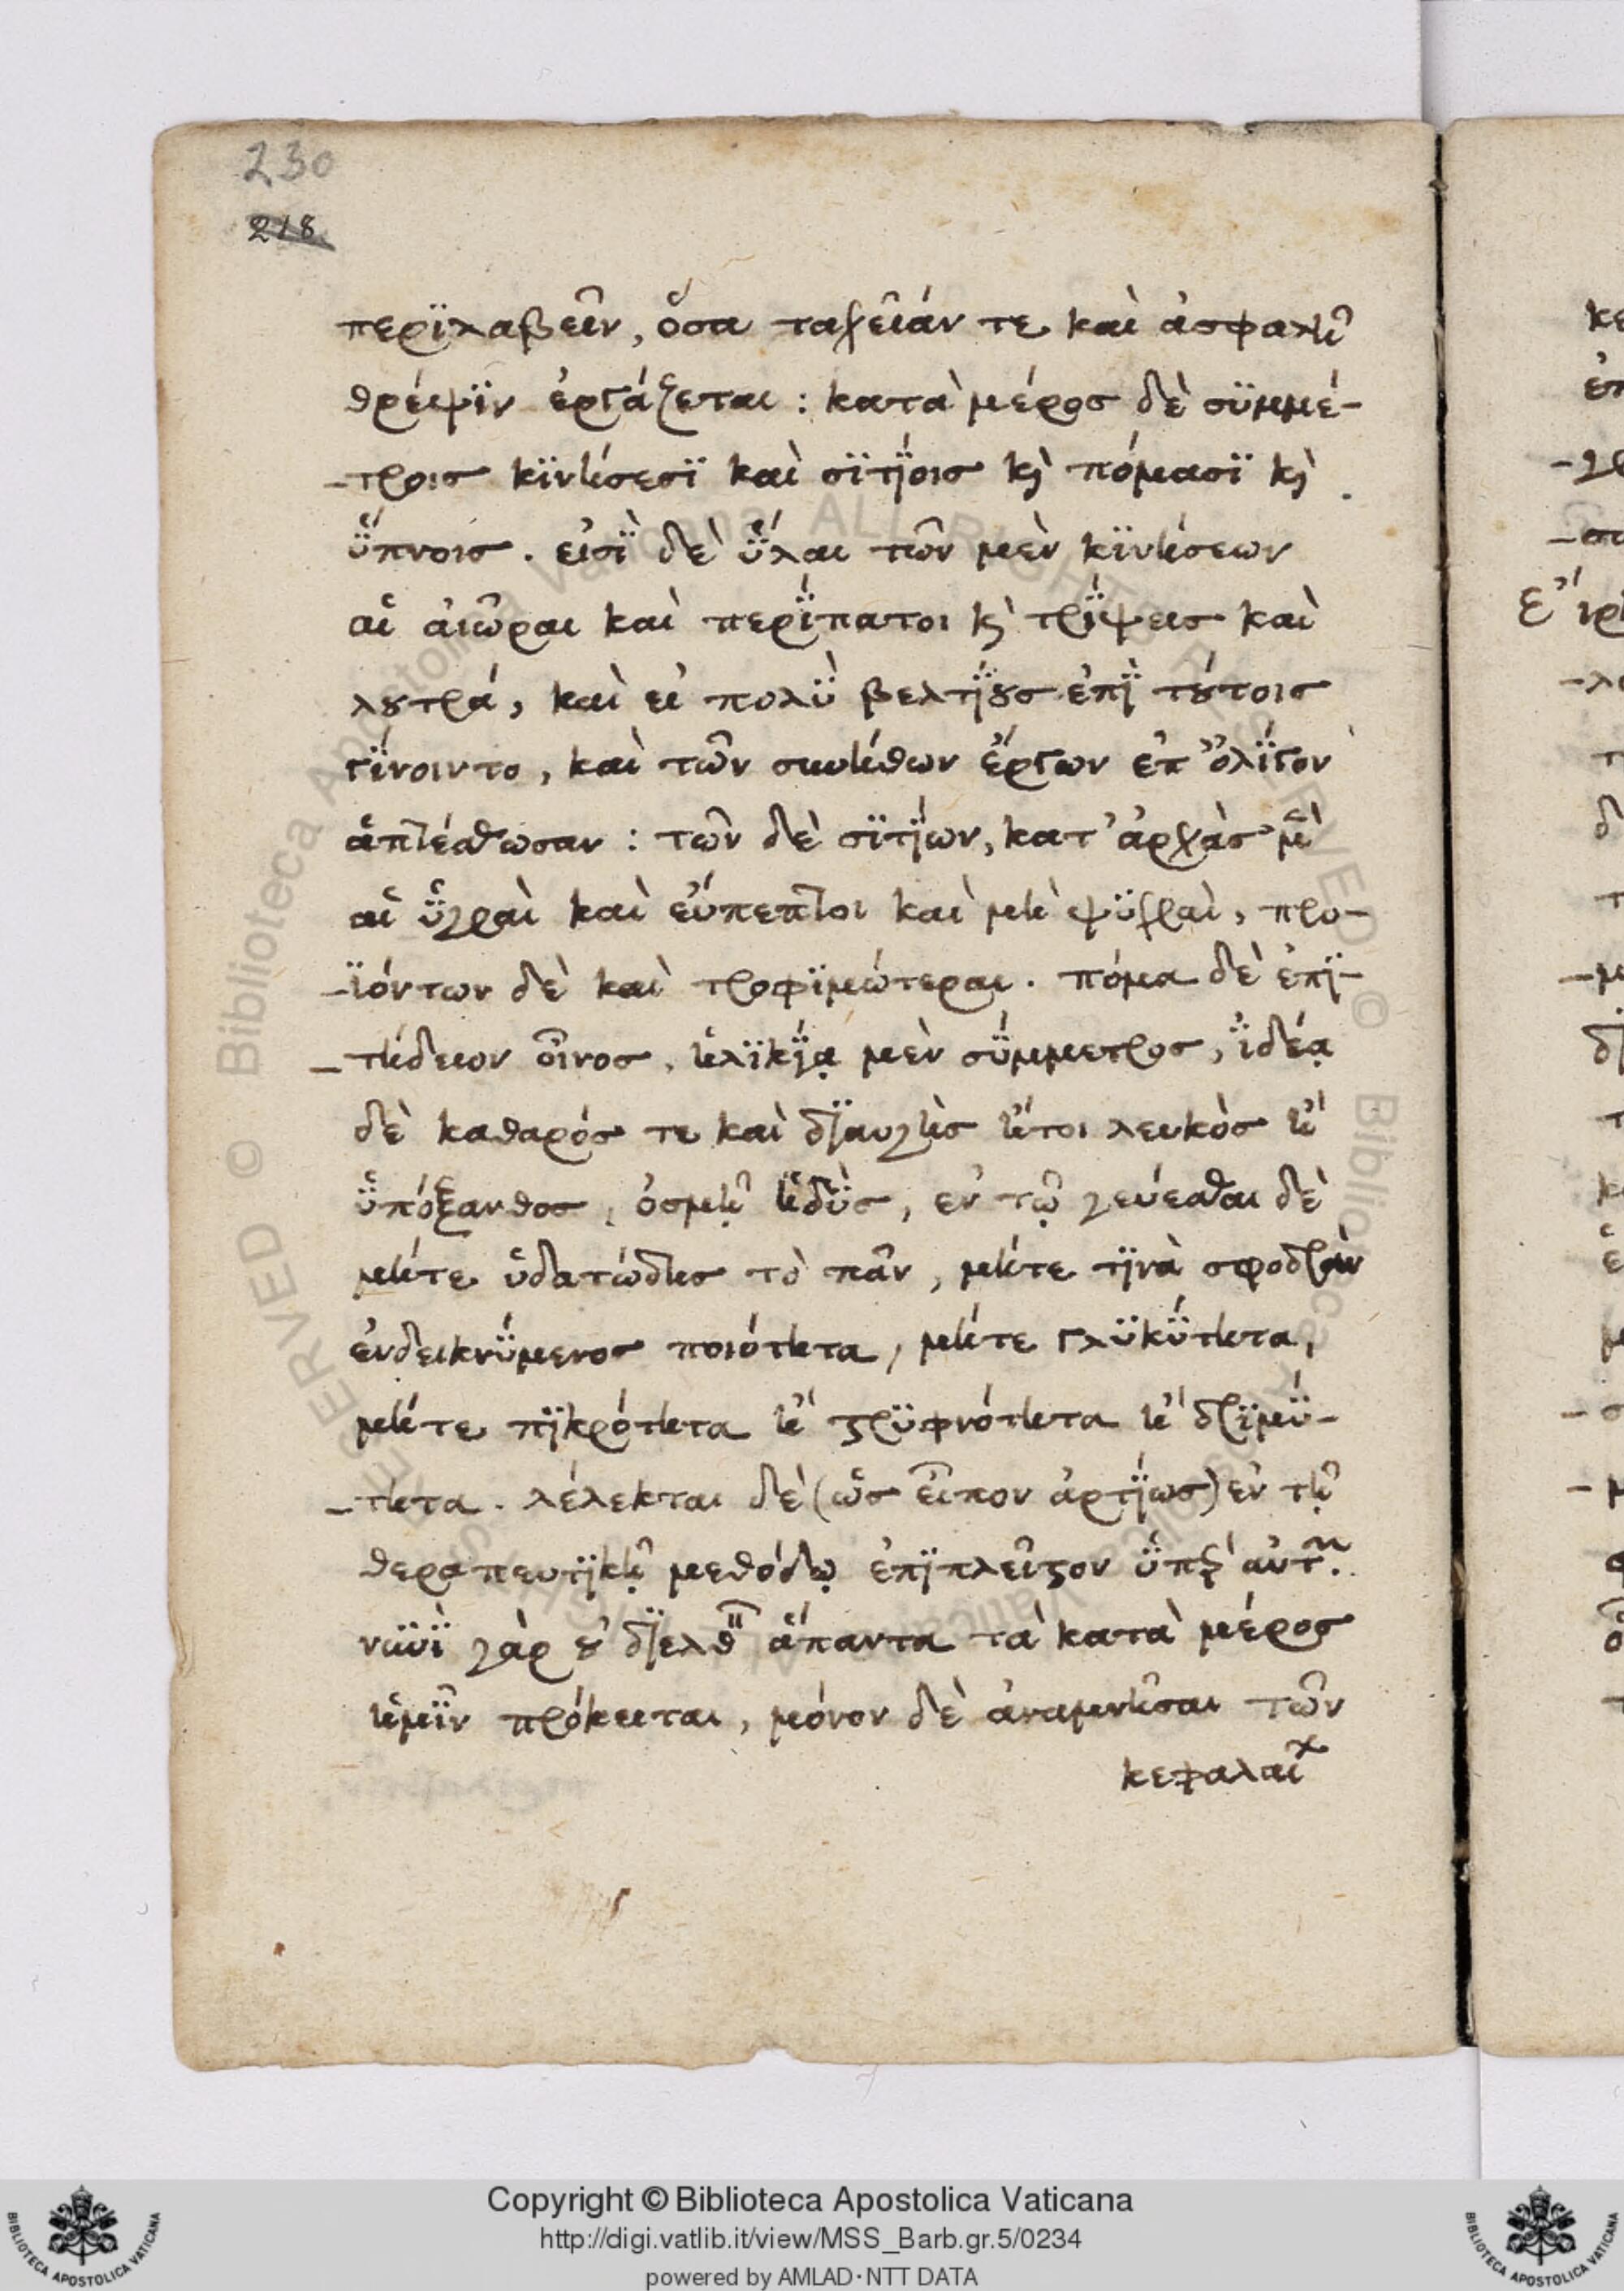 230
218
περϊλαβεῖν, ὅσα ταχεῖάν τε καὶ ἀσφαλῆ
θρέψϊν ἐργάζεται : κατὰ μέρος δὲ σϋμμέ-
-τροις κϊνήσεσϊ καὶ σϊτίοις κὶ πόμασϊ κὶ
ὕπνοις . εἰσῒ δὲ ὗλαι τῶν μὲν κϊνήσεων
αἱ αἰῶραι καὶ περΐπατοι κὶ τρΐψεις καὶ
λȣτρά, καὶ εἰ πολῢ βελτΐȣς ἐπῒ τȣ́τοις
γΐνοιντο, καὶ τῶν συνήθων ἔργων ἐπ' ὀλΐγον
ἁπτέσθωσαν : τῶν δὲ σϊτΐων, κατ' ἀρχὰς μὲ
αἱ ὑγραὶ καὶ εὔπεπτοι καὶ μὴ ψϋχραὶ, προ-
-ϊόντων δὲ καὶ τροφϊμώτεραι . πόμα δὲ ἐπϊ-
-τήδειον οἶνος, ἡλϊκΐᾳ μὲν σΰμμετρος, ἰδέᾳ
δὲ καθαρός τε καὶ δϊαυγὴς ἤτοι λευκὸς ἢ
ὑπόξανθος, ὀσμῇ ἡδῢς, ἐν τῷ γεύεσθαι δὲ
μήτε ὑδατώδης τὸ πᾶν, μήτε τϊνὰ σφοδρὰν
ἐνδεικνΰμενος ποιότητα, μήτε γλϋκΰτητα,
μήτε πϊκρότητα ἢ ϛρϋφνότητα ἢ δρϊμΰ-
-τητα . λέλεκται δὲ (ὡς εἶπον ἀρτΐως) ἐν τῇ
θεραπευτϊκῇ μεθόδῳ ἐπϊπλεῖϛον ὑπὲρ αὐτῶν.
νϋνῒ γὰρ ȣ̓ δϊελθεῖν ἅπαντα τὰ κατὰ μέρος
ἡμῖν πρόκειται, μόνον δὲ ἀναμνῆσαι τῶν
κεφαλαί
Copyright © Biblioteca Apostolica Vaticana
http://digi.vatlib.it/view/MSS_Barb.gr.5/0234
powered by AMLAD·NTT DATA